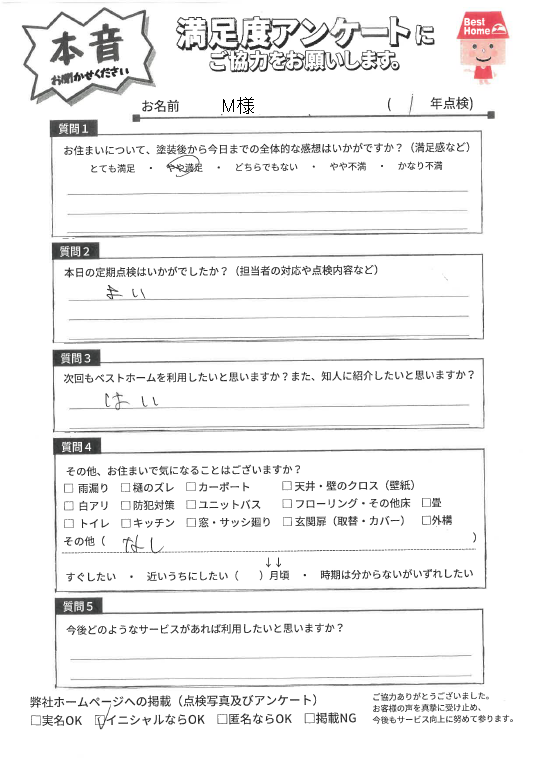 本音
お聞かせください
満足度アンケートに
ご協力をお願いします。
Best
Home
お名前 M様 ( 1 年点検)
質問1
お住まいについて、塗装後から今日までの全体的な感想はいかがですか？（満足感など）
とても満足 ・ やや満足 ・ どちらでもない ・ やや不満 ・ かなり不満
質問2
本日の定期点検はいかがでしたか？（担当者の対応や点検内容など）
よい
質問3
次回もベストホームを利用したいと思いますか？また、知人に紹介したいと思いますか？
はい
質問4
その他、お住まいで気になることはございますか？
□ 雨漏り □ 樋のズレ □ カーポート □ 天井・壁のクロス（壁紙）
□ 白アリ □ 防犯対策 □ ユニットバス □ フローリング・その他床 □畳
□ トイレ □ キッチン □ 窓・サッシ廻り □ 玄関扉（取替・カバー） □外構
その他（ なし ）
↓↓
すぐしたい ・ 近いうちにしたい（ ）月頃 ・ 時期は分からないがいずれしたい
質問5
今後どのようなサービスがあれば利用したいと思いますか？
弊社ホームページへの掲載（点検写真及びアンケート）
□実名OK ☑イニシャルならOK □匿名ならOK □掲載NG
ご協力ありがとうございました。
お客様の声を真摯に受け止め、
今後もサービス向上に努めて参ります。